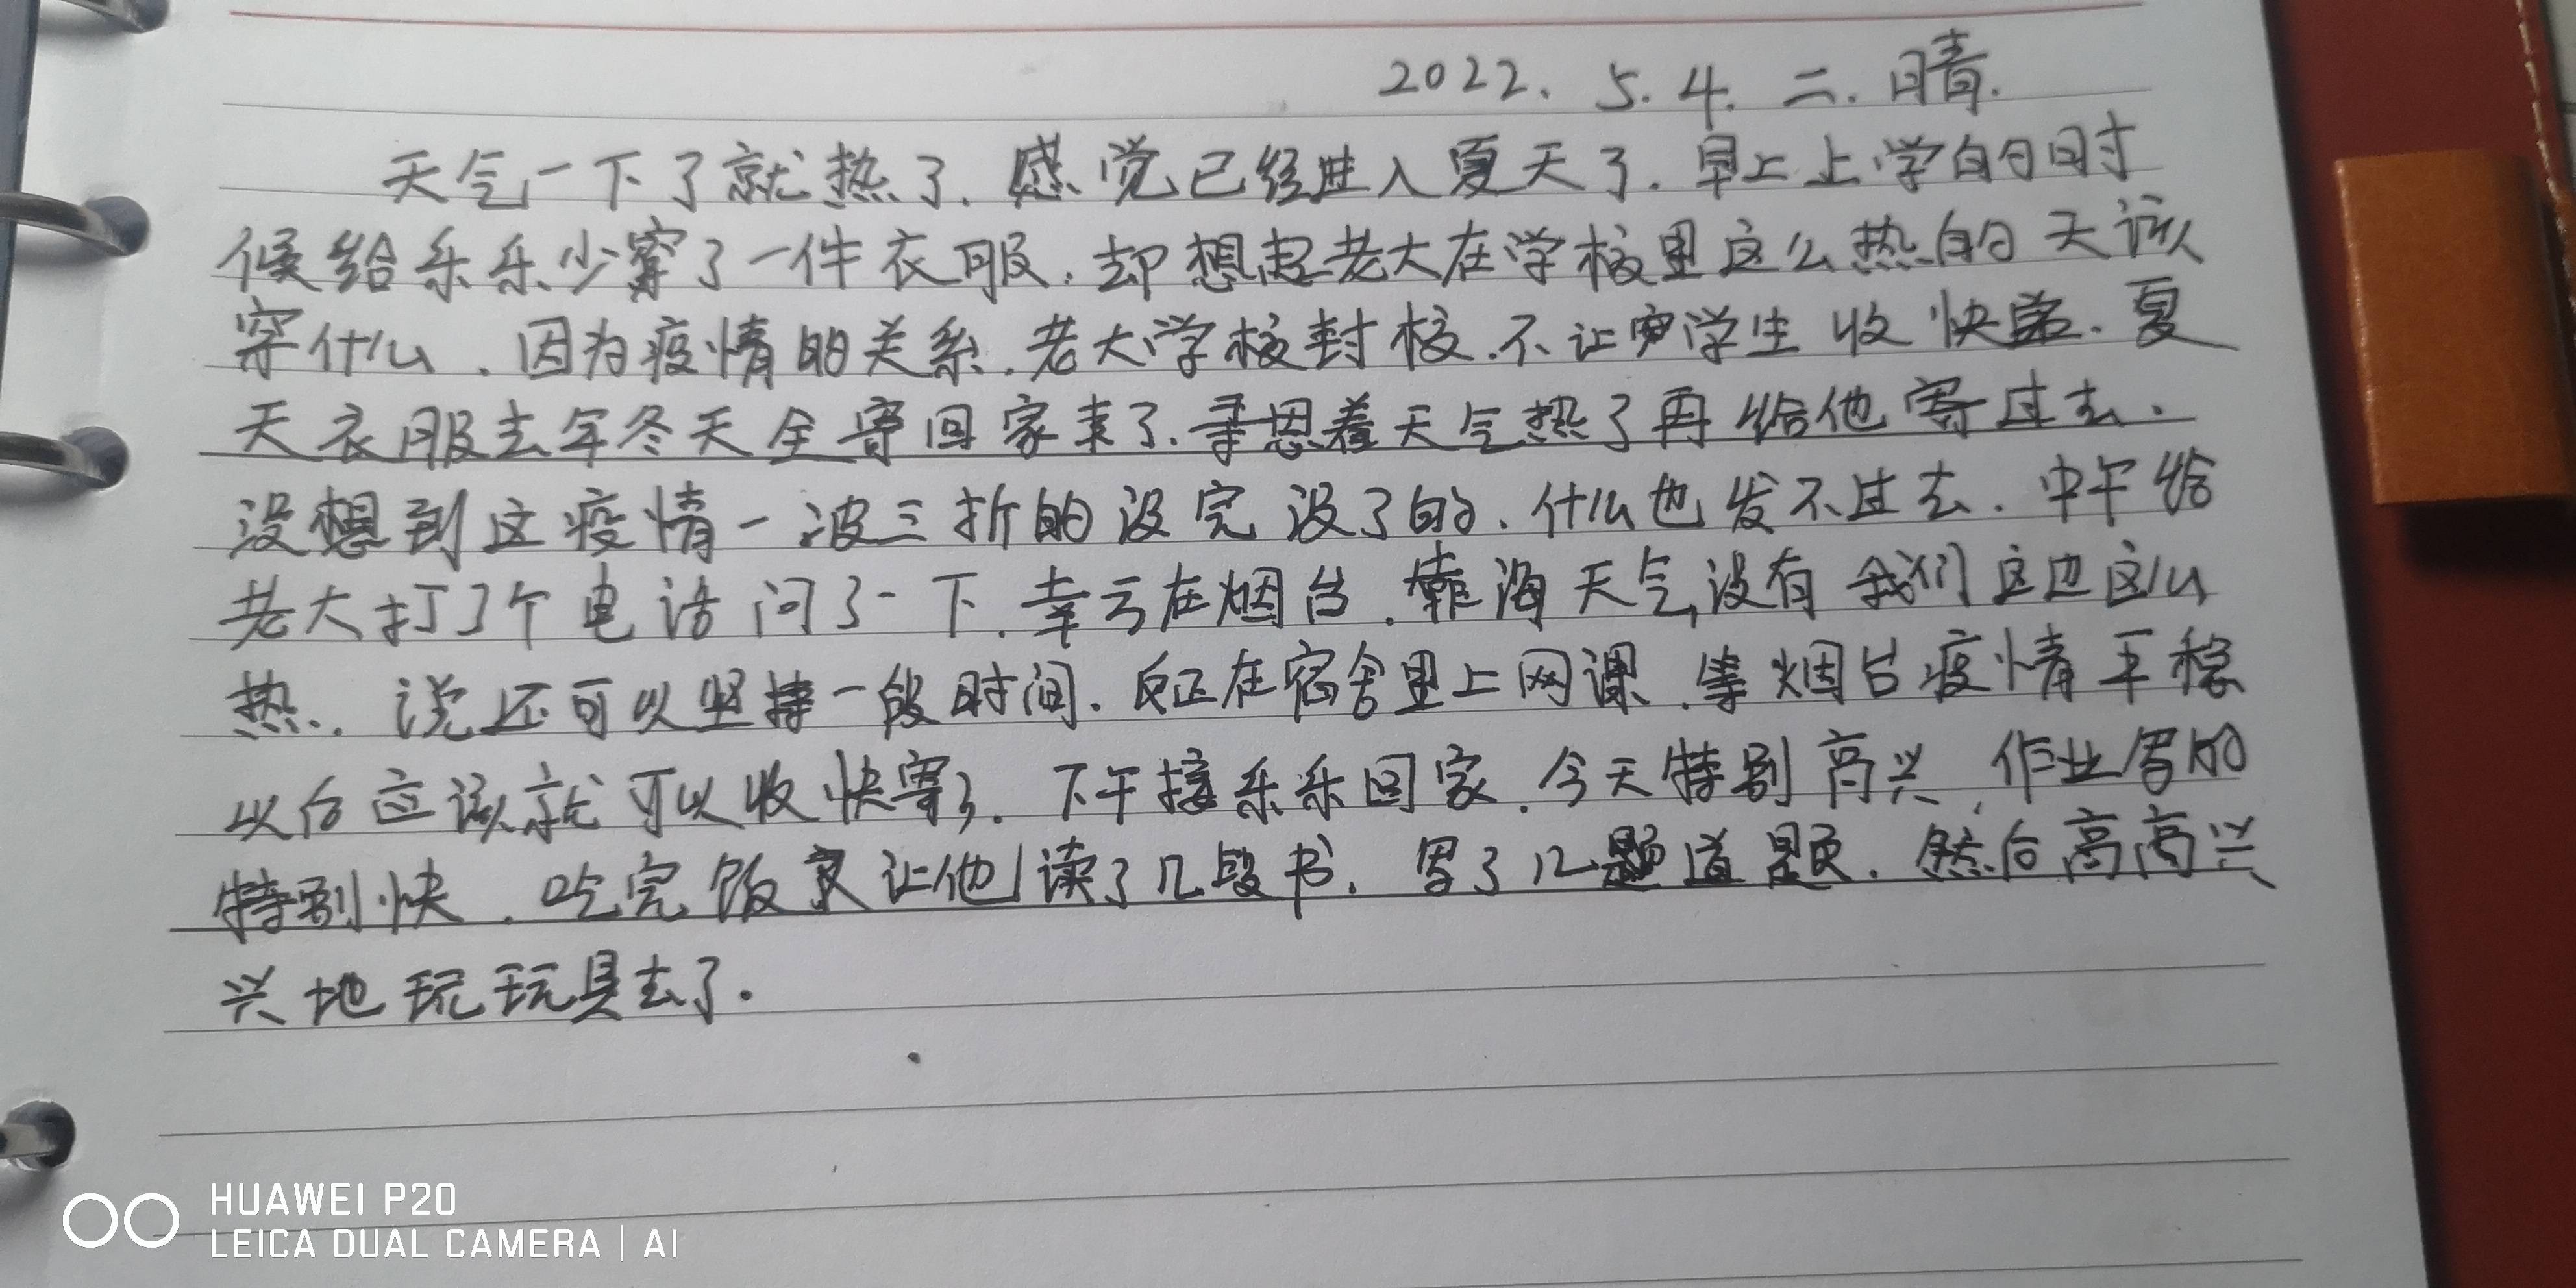 2022. 5. 4. 二. 晴.
天气一下了就热了. 感觉已经进入夏天了. 早上上学的时
候给乐乐少穿了一件衣服. 却想起老大在学校里这么热的天该
穿什么. 因为疫情的关系. 老大学校封校. 不让学生收快递. 夏
天衣服去年冬天全寄回家来了. 寻思着天气热了再给他寄过去.
没想到这疫情一波三折的没完没了的. 什么也发不过去. 中午给
老大打了个电话问了一下. 幸亏在烟台. 靠海天气没有我们这边这么
热. 说还可以坚持一段时间. 反正在宿舍里上网课. 等烟台疫情平稳
以后应该就可以收快寄了. 下午接乐乐回家. 今天特别高兴, 作业写的
特别快. 吃完饭又让他读了几段书. 写了几道题. 然后高高兴
兴地玩玩具去了.
HUAWEI P20
LEICA DUAL CAMERA | AI